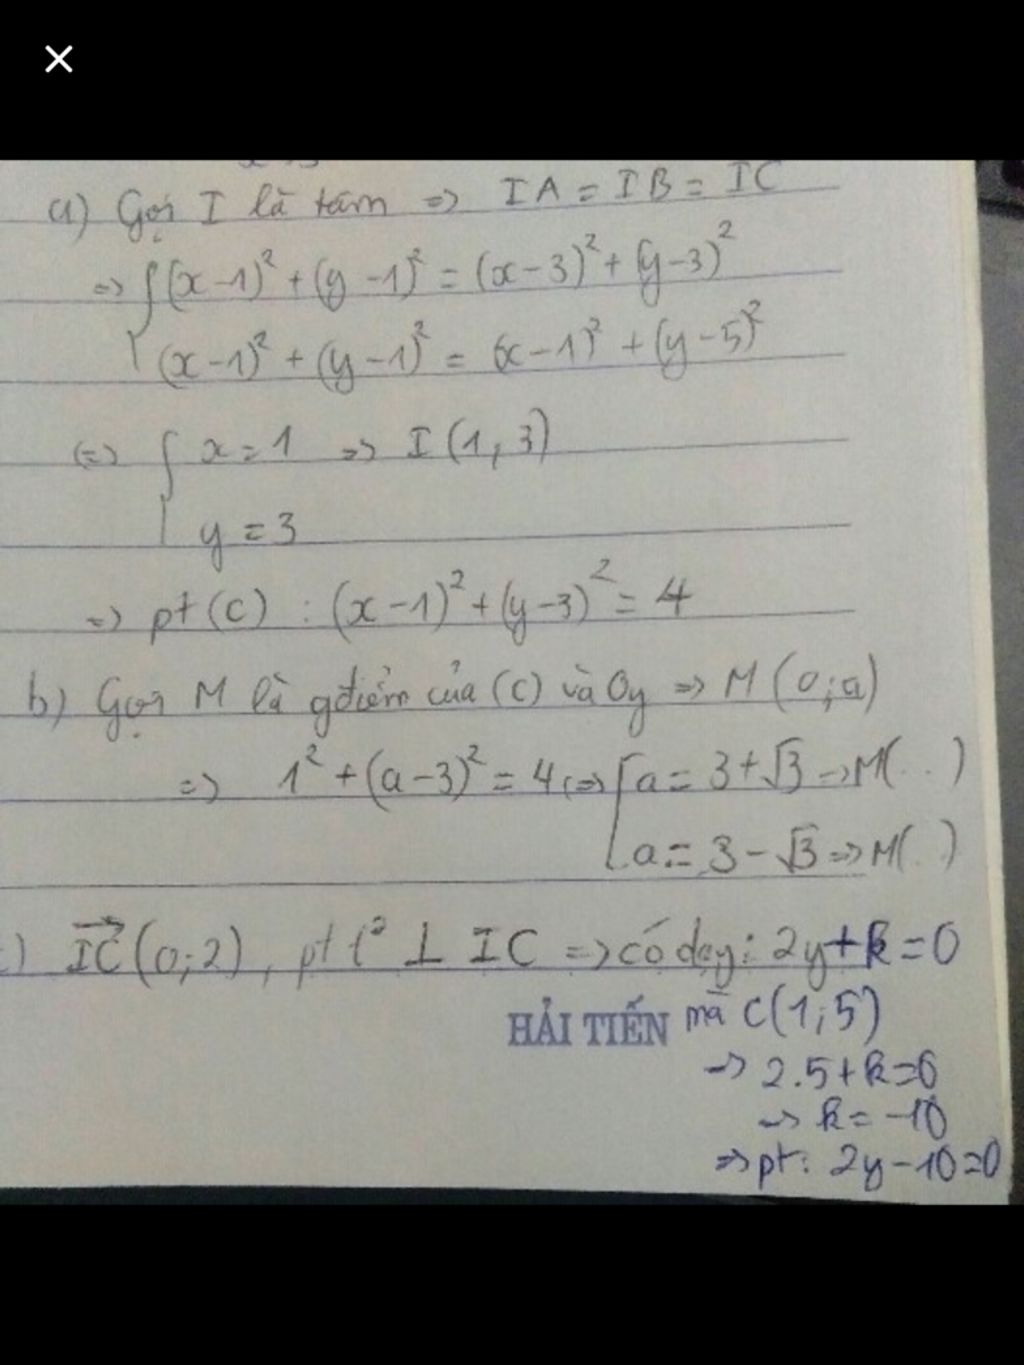 a) Gọi I là tâm => IA = IB = IC
=> { (x-1)² + (y-1)² = (x-3)² + (y-3)²
(x-1)² + (y-1)² = (x-1)² + (y-5)²
<=> { x = 1 => I(1,3)
y = 3
=> pt (C) : (x-1)² + (y-3)² = 4
b) Gọi M là gđiểm của (C) và Oy => M(0;a)
=> 1² + (a-3)² = 4 <=> [ a = 3+√3 -> M(..)
a = 3-√3 => M(..)
c) IC→(0;2), pt t² ⊥ IC => có dạng: 2y+k=0
HẢI TIẾN mà C(1;5)
-> 2.5+k=0
=> k = -10
=> pt: 2y-10=0